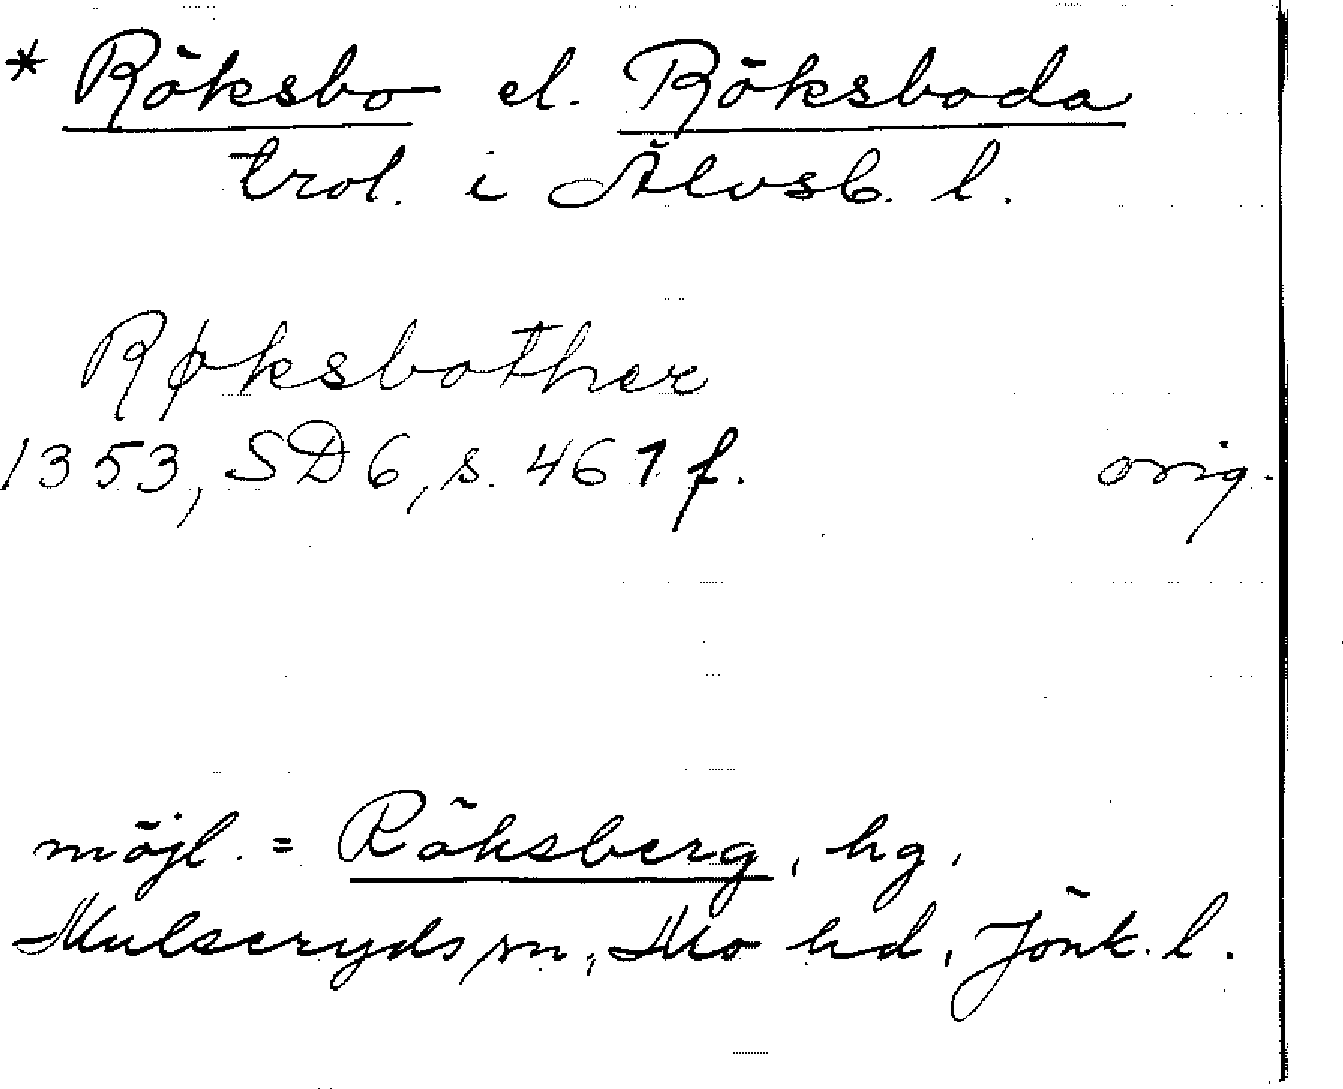 * Röksbo el. Röksboda
trol. i Älvsb. l.
Røksbother
1353, SD 6, s. 461 f. orig.
möjl. = Röksberg, hg,
Mulseryds sn, Mo hd, Jönk. l.